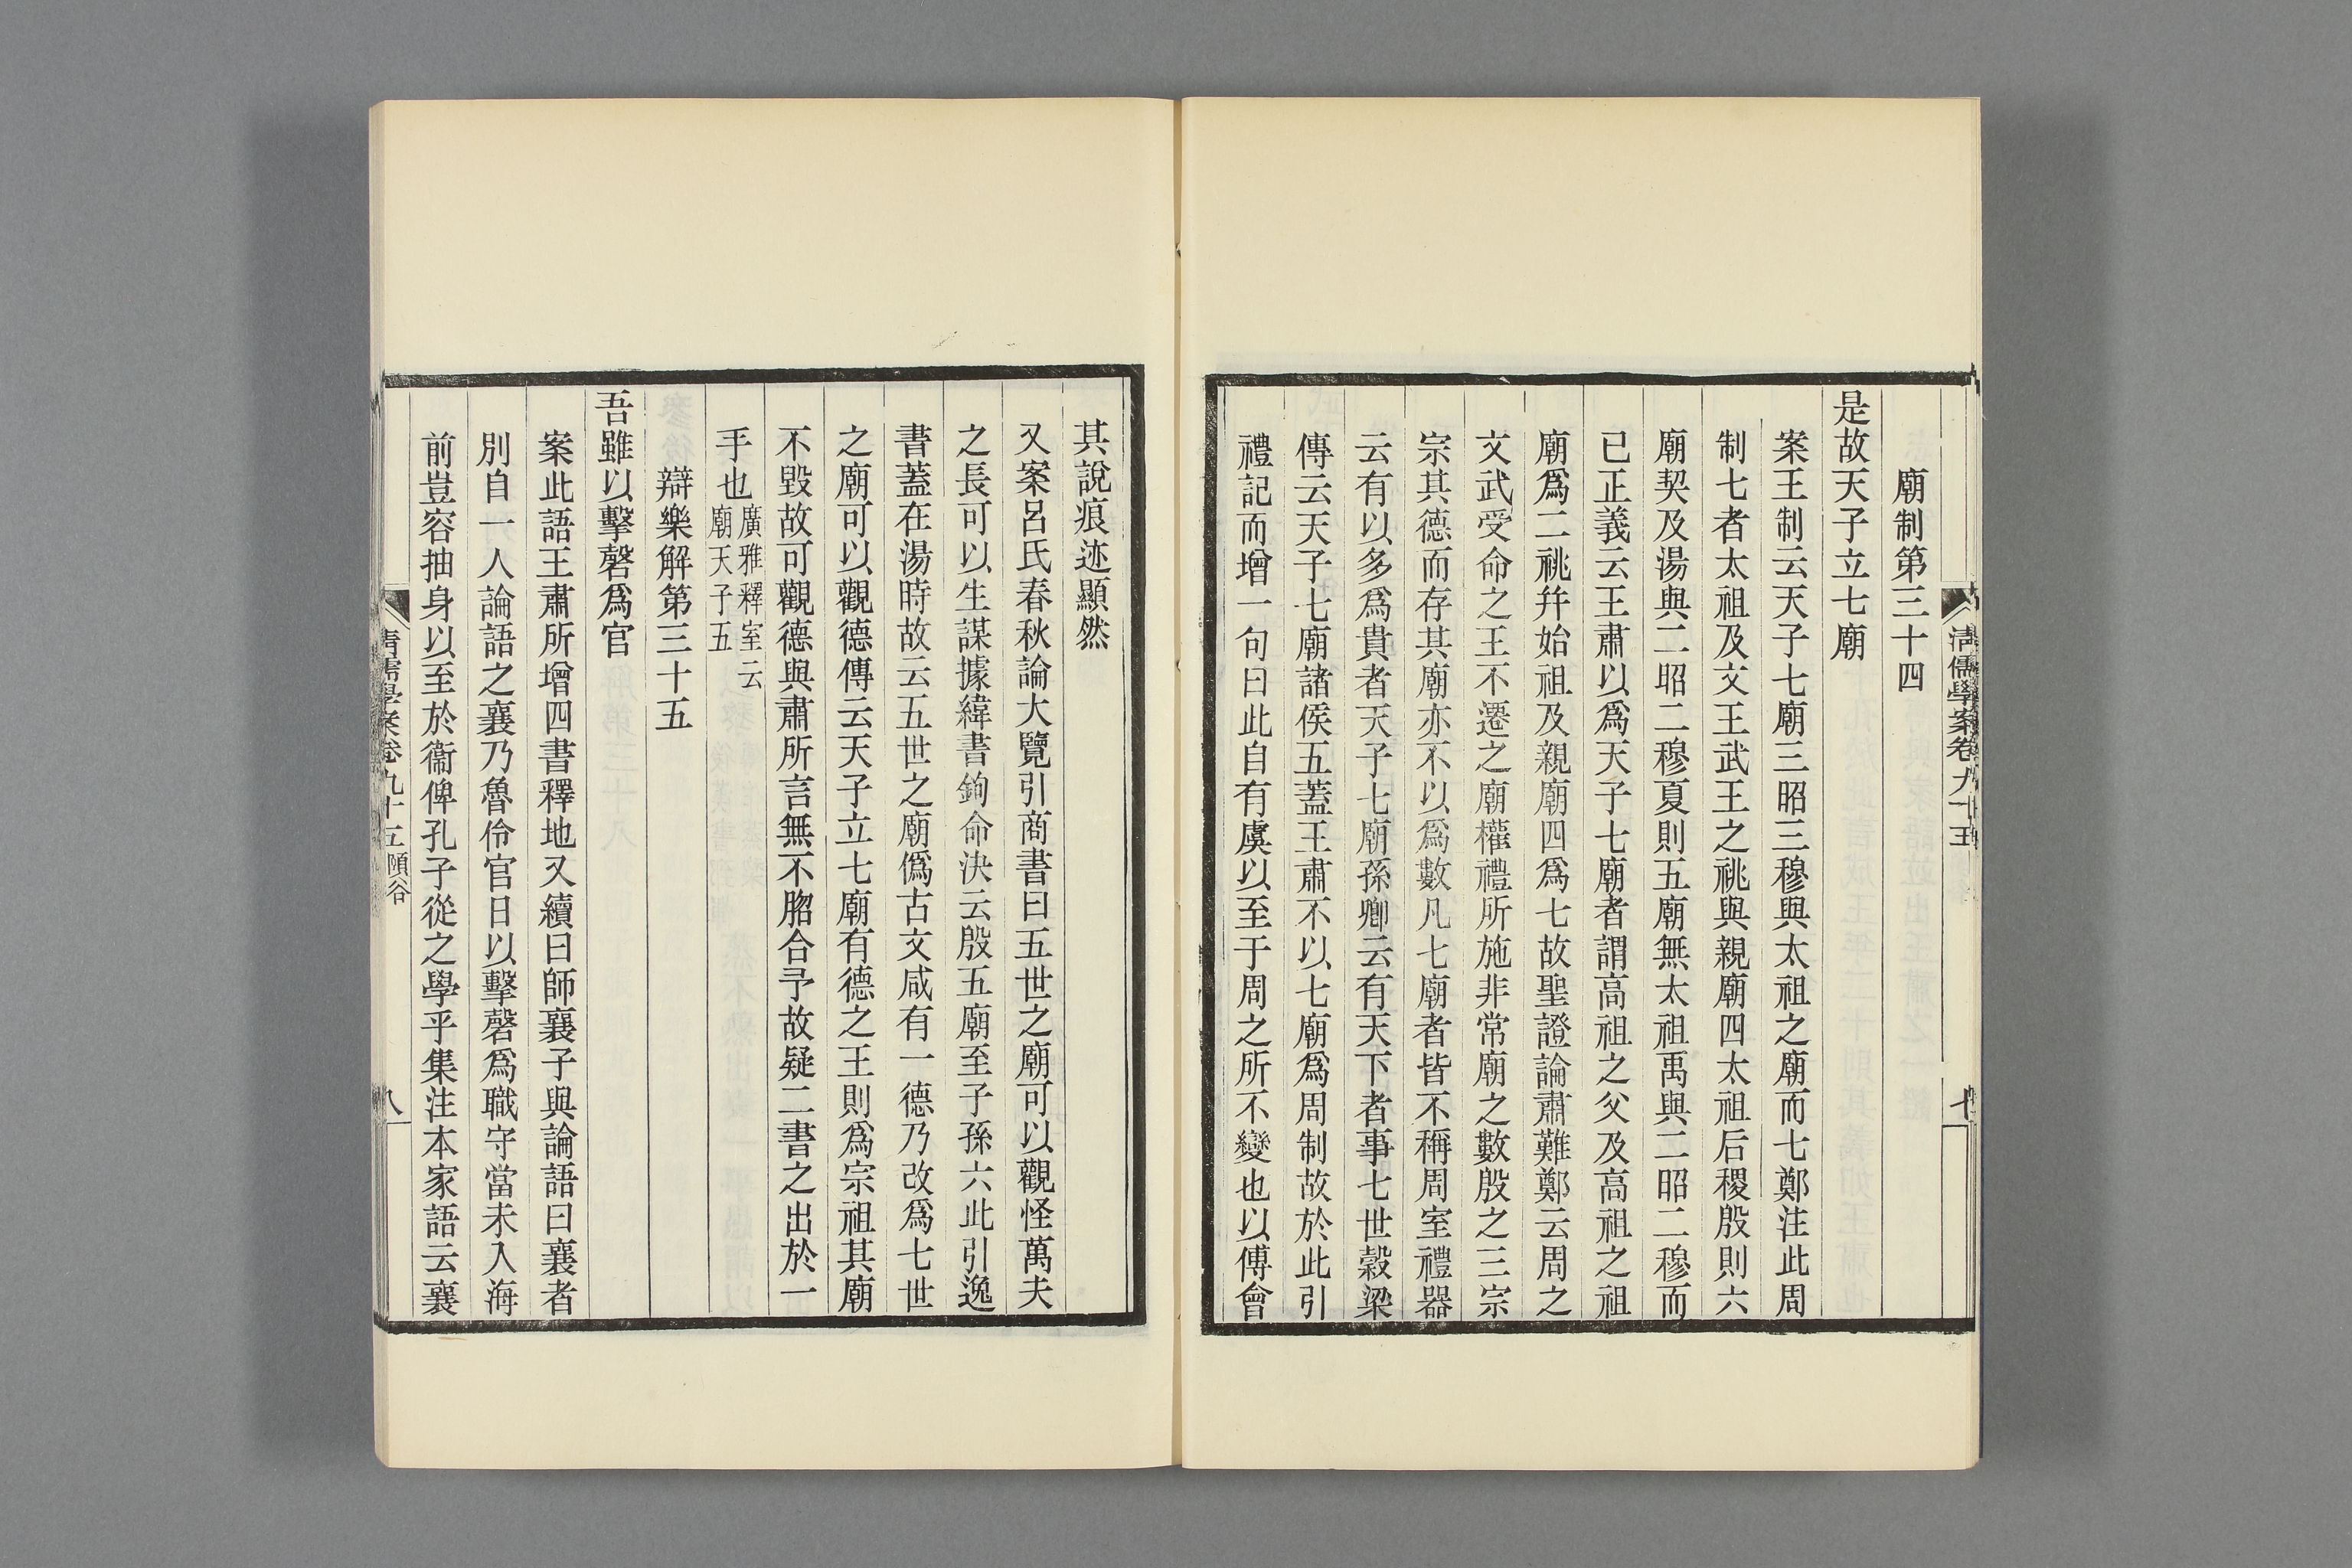 清儒學案卷九十五
廟制第三十四
是故天子立七廟
案王制云天子七廟三昭三穆與太祖之廟而七鄭注此周
制七者太祖及文王武王之祧與親廟四太祖后稷殷則六
廟契及湯與二昭二穆夏則五廟無太祖禹與二昭二穆而
已正義云王肅以爲天子七廟者謂高祖之父及高祖之祖
廟爲二祧幷始祖及親廟四爲七故聖證論肅難鄭云周之
文武受命之王不遷之廟權禮所施非常廟之數殷之三宗
宗其德而存其廟亦不以爲數凡七廟者皆不稱周室禮器
云有以多爲貴者天子七廟孫卿云有天下者事七世穀梁
傳云天子七廟諸侯五蓋王肅不以七廟爲周制故於此引
禮記而增一句曰此自有虞以至于周之所不變也以傅會
其說痕迹顯然
又案呂氏春秋論大覽引商書曰五世之廟可以觀怪萬夫
之長可以生謀據緯書鉤命決云殷五廟至子孫六此引逸
書蓋在湯時故云五世之廟僞古文咸有一德乃改爲七世
之廟可以觀德傳云天子立七廟有德之王則爲宗祖其廟
不毀故可觀德與肅所言無不脗合予故疑二書之出於一
手也廣雅釋室云
廟天子五
辯樂解第三十五
吾雖以擊磬爲官
案此語王肅所增四書釋地又續曰師襄子與論語曰襄者
別自一人論語之襄乃魯伶官日以擊磬爲職守當未入海
前豈容抽身以至於衞俾孔子從之學乎集注本家語云襄
清儒學案卷九十五 頨谷
八